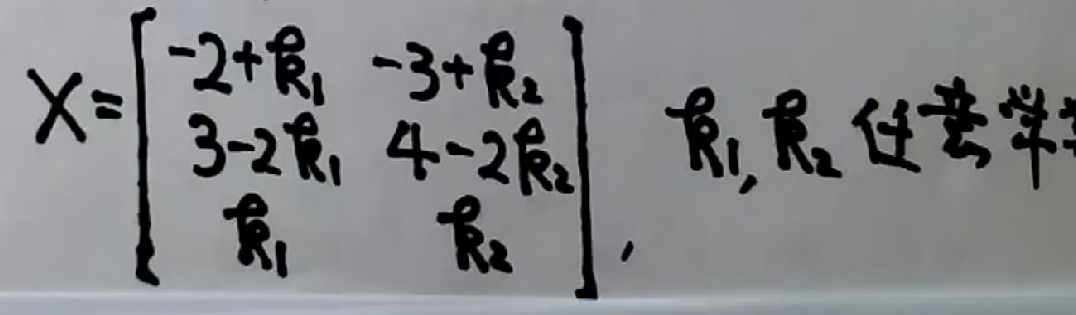 X= [ -2+k₁ -3+k₂
3-2k₁ 4-2k₂
k₁ k₂ ], k₁, k₂ 任意常